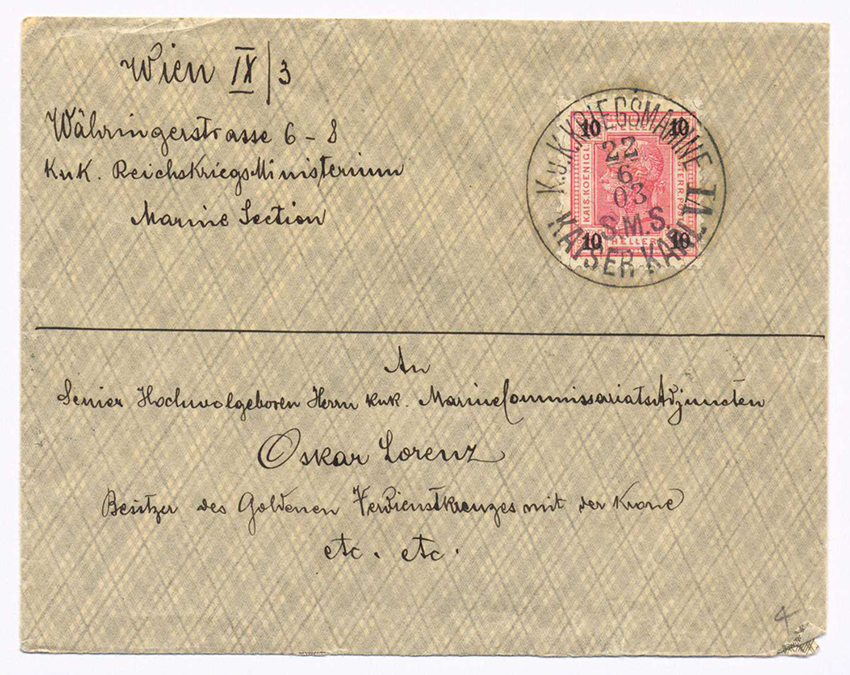 Wien IX/3
Währingerstrasse 6-8
KuK. ReichskriegsMinisterium
Marine Section
K.u.K. KRIEGSMARINE
22
6
03
S.M.S.
KAISER KARL VI
10 10
KAIS. KOENIGL
HELLER
10 10
An
Seiner Hochwolgeboren Herrn kuk. MarineCommissariatsAdjuncten
Oskar Lorenz
Besitzer des Goldenen Verdienstkreuzes mit der Krone
etc. etc.
4